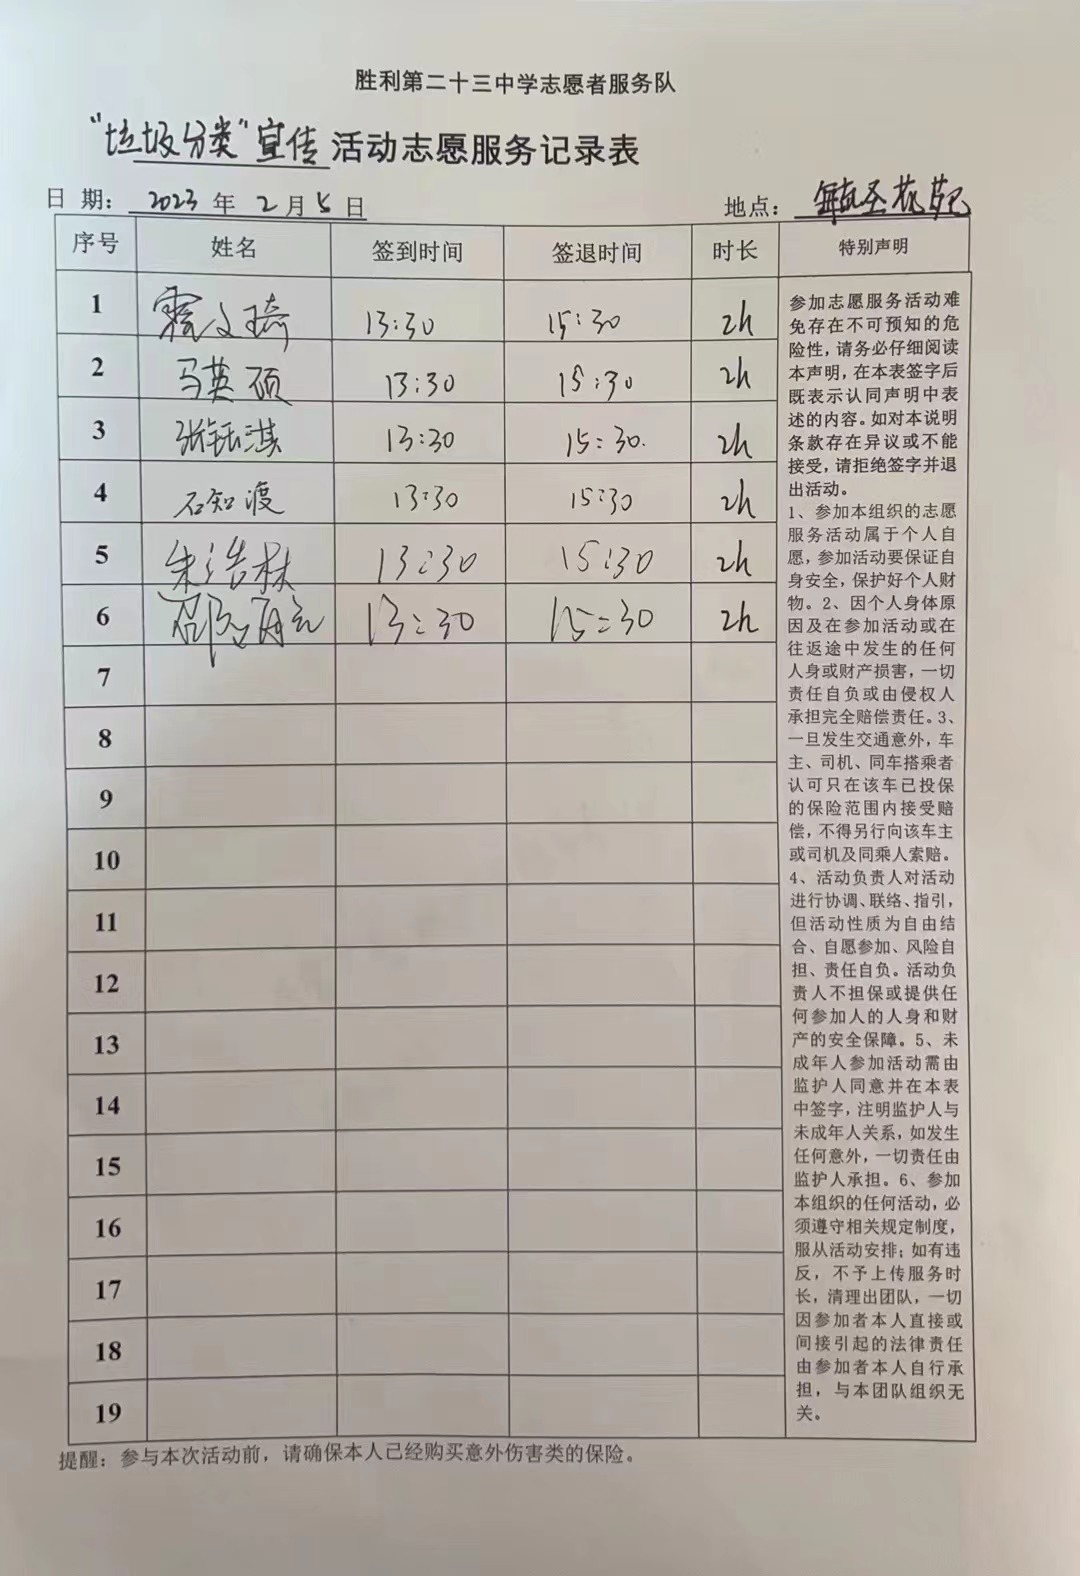 胜利第二十三中学志愿者服务队
“垃圾分类”宣传活动志愿服务记录表
日 期： 2023 年 2 月 5 日 地点： 花苑
序号 姓名 签到时间 签退时间 时长 特别声明
1 霍文琦 13:30 15:30 2h
2 马英硕 13:30 15:30 2h
3 张钰淇 13:30 15:30. 2h
4 石知渡 13:30 15:30 2h
5 朱浩林 13:30 15:30 2h
6 13:30 15:30 2h
7
8
9
10
11
12
13
14
15
16
17
18
19
参加志愿服务活动难
免存在不可预知的危
险性，请务必仔细阅读
本声明，在本表签字后
既表示认同声明中表
述的内容。如对本说明
条款存在异议或不能
接受，请拒绝签字并退
出活动。
1、参加本组织的志愿
服务活动属于个人自
愿，参加活动要保证自
身安全，保护好个人财
物。2、因个人身体原
因及在参加活动或在
往返途中发生的任何
人身或财产损害，一切
责任自负或由侵权人
承担完全赔偿责任。3、
一旦发生交通意外，车
主、司机、同车搭乘者
认可只在该车已投保
的保险范围内接受赔
偿，不得另行向该车主
或司机及同乘人索赔。
4、活动负责人对活动
进行协调、联络、指引，
但活动性质为自由结
合、自愿参加、风险自
担、责任自负。活动负
责人不担保或提供任
何参加人的人身和财
产的安全保障。5、未
成年人参加活动需由
监护人同意并在本表
中签字，注明监护人与
未成年人关系，如发生
任何意外，一切责任由
监护人承担。6、参加
本组织的任何活动，必
须遵守相关规定制度，
服从活动安排；如有违
反，不予上传服务时
长，清理出团队，一切
因参加者本人直接或
间接引起的法律责任
由参加者本人自行承
担，与本团队组织无
关。
提醒：参与本次活动前，请确保本人已经购买意外伤害类的保险。